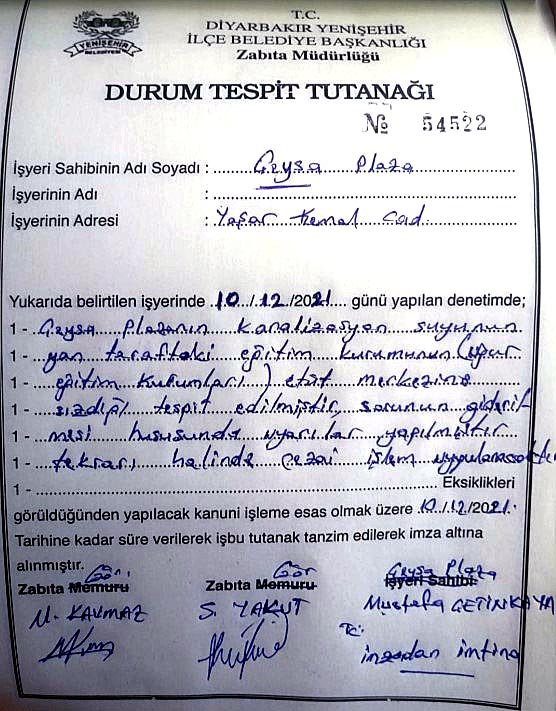 T.C.
DİYARBAKIR YENİŞEHİR
İLÇE BELEDİYE BAŞKANLIĞI
Zabıta Müdürlüğü
YENİŞEHİR
BELEDİYESİ
DURUM TESPİT TUTANAĞI
№ 54522
İşyeri Sahibinin Adı Soyadı : Geysa Plaza
İşyerinin Adı :
İşyerinin Adresi : Yaşar Kemal Cad
Yukarıda belirtilen işyerinde 10/12/2021 günü yapılan denetimde;
1 - Geysa Plazanın kanalizasyon suyunun
1 - yan taraftaki eğitim kurumunun (uğur
1 - eğitim kurumları) etüt merkezine
1 - sızdığı tespit edilmiştir, sorunun gideril
1 - mesi hususunda uyarılar yapılmıştır
1 - tekrarı halinde cezai işlem uygulanacaktır
1 - Eksiklikleri
görüldüğünden yapılacak kanuni işleme esas olmak üzere 10/12/2021.
Tarihine kadar süre verilerek işbu tutanak tanzim edilerek imza altına
alınmıştır.
Gör Gör Geysa Plaza
Zabıta Memuru Zabıta Memuru İşyeri Sahibi
M. KAYMAZ S. YAKUT Mustafa ÇETİNKAYA
TC:
imzadan imtina